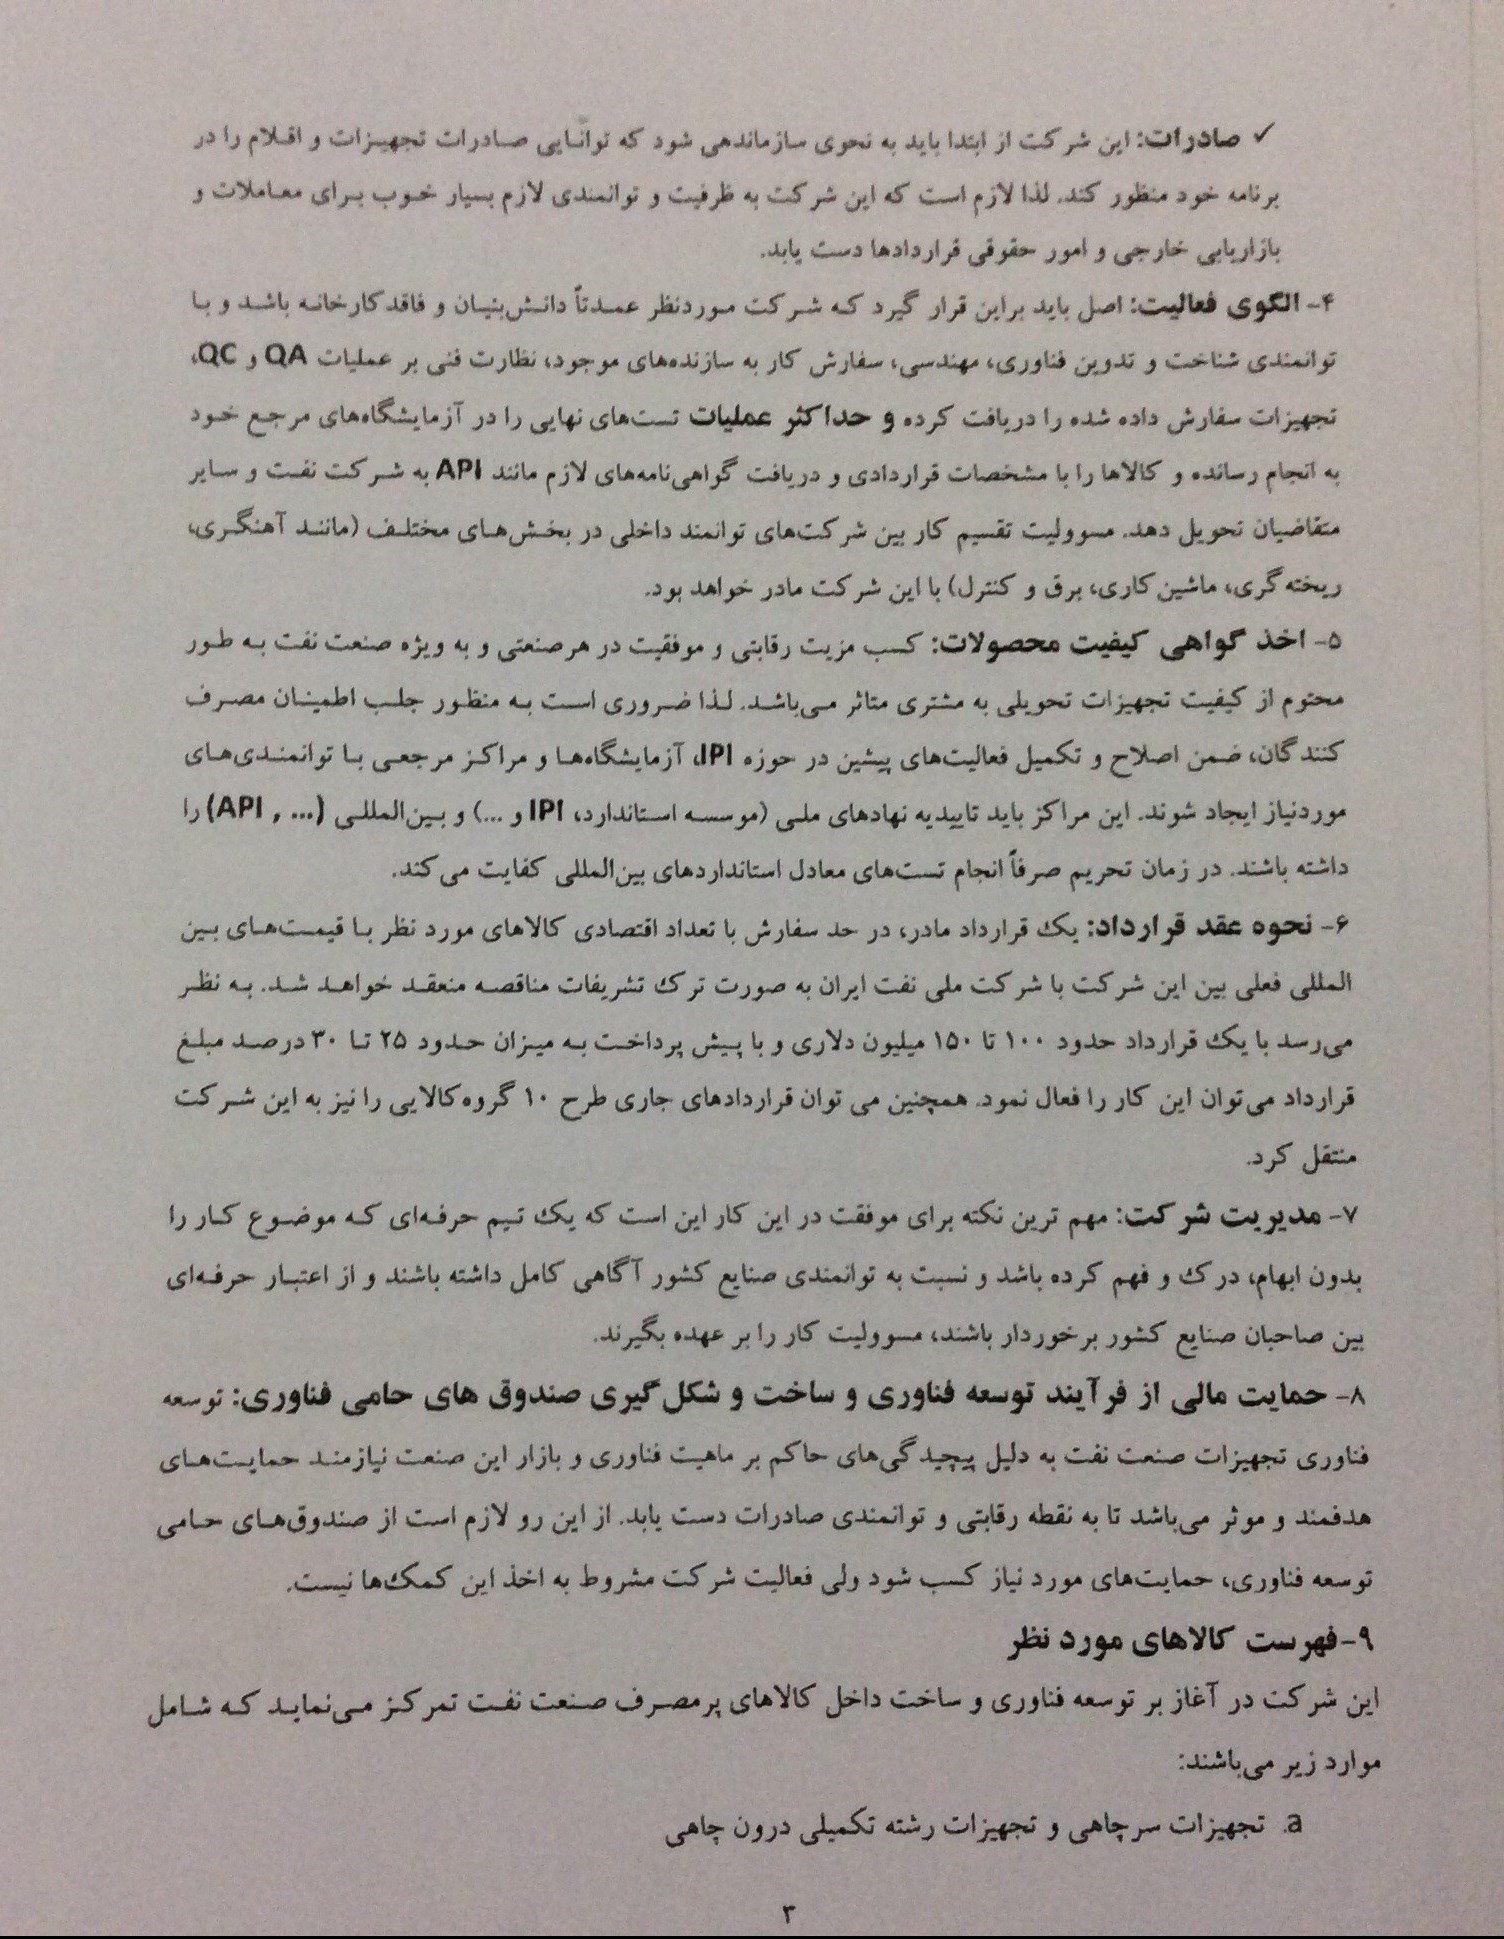 ✓ صادرات: این شرکت از ابتدا باید به نحوی سازماندهی شود که توانایی صادرات تجهیزات و اقلام را در
برنامه خود منظور کند. لذا لازم است که این شرکت به ظرفیت و توانمندی لازم بسیار خوب برای معاملات و
بازاریابی خارجی و امور حقوقی قراردادها دست یابد.
۴- الگوی فعالیت: اصل باید براین قرار گیرد که شرکت موردنظر عمدتاً دانش‌بنیان و فاقد کارخانه باشد و با
توانمندی شناخت و تدوین فناوری، مهندسی، سفارش کار به سازنده‌های موجود، نظارت فنی بر عملیات QA و QC،
تجهیزات سفارش داده شده را دریافت کرده و حداکثر عملیات تست‌های نهایی را در آزمایشگاه‌های مرجع خود
به انجام رسانده و کالاها را با مشخصات قراردادی و دریافت گواهی‌نامه‌های لازم مانند API به شرکت نفت و سایر
متقاضیان تحویل دهد. مسوولیت تقسیم کار بین شرکت‌های توانمند داخلی در بخش‌های مختلف (مانند آهنگری،
ریخته گری، ماشین کاری، برق و کنترل) با این شرکت مادر خواهد بود.
۵- اخذ گواهی کیفیت محصولات: کسب مزیت رقابتی و موفقیت در هرصنعتی و به ویژه صنعت نفت به طور
محتوم از کیفیت تجهیزات تحویلی به مشتری متاثر می‌باشد. لذا ضروری است به منظور جلب اطمینان مصرف
کنندگان، ضمن اصلاح و تکمیل فعالیت‌های پیشین در حوزه IPI، آزمایشگاه‌ها و مراکز مرجعی با توانمندی‌های
موردنیاز ایجاد شوند. این مراکز باید تاییدیه نهادهای ملی (موسسه استاندارد، IPI و ...) و بین‌المللی (API , ...) را
داشته باشند. در زمان تحریم صرفاً انجام تست‌های معادل استانداردهای بین‌المللی کفایت می‌کند.
۶- نحوه عقد قرارداد: یک قرارداد مادر، در حد سفارش با تعداد اقتصادی کالاهای مورد نظر با قیمت‌های بین
المللی فعلی بین این شرکت با شرکت ملی نفت ایران به صورت ترک تشریفات مناقصه منعقد خواهد شد. به نظر
می‌رسد با یک قرارداد حدود ۱۰۰ تا ۱۵۰ میلیون دلاری و با پیش پرداخت به میزان حدود ۲۵ تا ۳۰ درصد مبلغ
قرارداد می‌توان این کار را فعال نمود. همچنین می توان قراردادهای جاری طرح ۱۰ گروه کالایی را نیز به این شرکت
منتقل کرد.
۷- مدیریت شرکت: مهم ترین نکته برای موفقت در این کار این است که یک تیم حرفه‌ای که موضوع کار را
بدون ابهام، درک و فهم کرده باشد و نسبت به توانمندی صنایع کشور آگاهی کامل داشته باشند و از اعتبار حرفه‌ای
بین صاحبان صنایع کشور برخوردار باشند، مسوولیت کار را بر عهده بگیرند.
۸- حمایت مالی از فرآیند توسعه فناوری و ساخت و شکل گیری صندوق های حامی فناوری: توسعه
فناوری تجهیزات صنعت نفت به دلیل پیچیدگی‌های حاکم بر ماهیت فناوری و بازار این صنعت نیازمند حمایت‌های
هدفمند و موثر می‌باشد تا به نقطه رقابتی و توانمندی صادرات دست یابد. از این رو لازم است از صندوق‌های حامی
توسعه فناوری، حمایت‌های مورد نیاز کسب شود ولی فعالیت شرکت مشروط به اخذ این کمک‌ها نیست.
۹-فهرست کالاهای مورد نظر
این شرکت در آغاز بر توسعه فناوری و ساخت داخل کالاهای پرمصرف صنعت نفت تمرکز می‌نماید که شامل
موارد زیر می‌باشند:
a. تجهیزات سرچاهی و تجهیزات رشته تکمیلی درون چاهی
۳